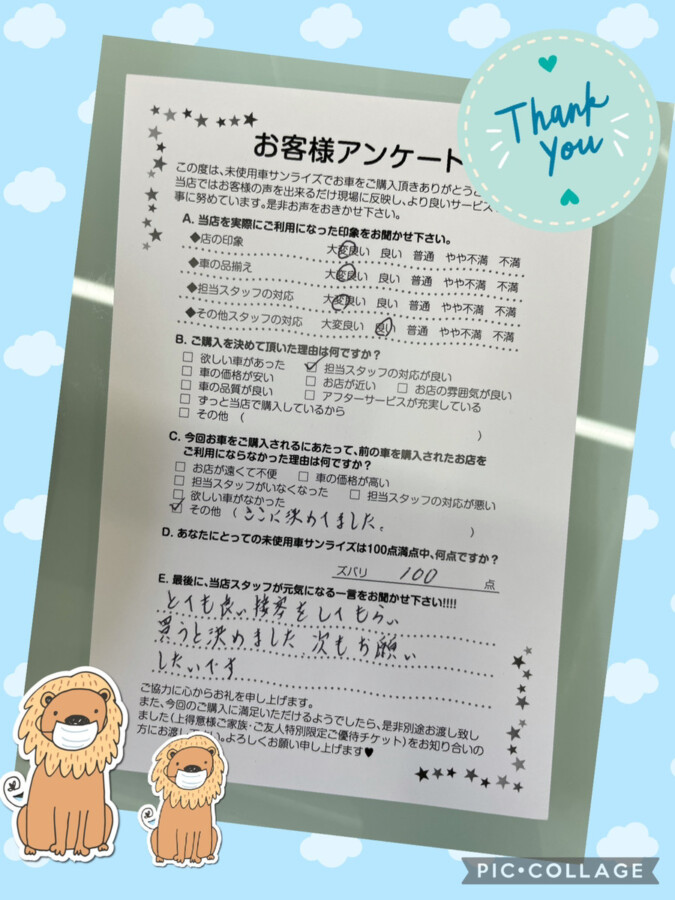 Thank
you
お客様アンケート
この度は、未使用車サンライズでお車をご購入頂きありがとうご
当店ではお客様の声を出来るだけ現場に反映し、より良いサービス
事に努めています。是非お声をおきかせ下さい。
A. 当店を実際にご利用になった印象をお聞かせ下さい。
◆店の印象 大変良い 良い 普通 やや不満 不満
◆車の品揃え 大変良い 良い 普通 やや不満 不満
◆担当スタッフの対応 大変良い 良い 普通 やや不満 不満
◆その他スタッフの対応 大変良い 良い 普通 やや不満 不満
B. ご購入を決めて頂いた理由は何ですか？
□ 欲しい車があった ☑ 担当スタッフの対応が良い
□ 車の価格が安い □ お店が近い □ お店の雰囲気が良い
□ 車の品質が良い □ アフターサービスが充実している
□ ずっと当店で購入しているから
□ その他 ( )
C. 今回お車をご購入されるにあたって、前の車を購入されたお店を
ご利用にならなかった理由は何ですか？
□ お店が遠くて不便 □ 車の価格が高い
□ 担当スタッフがいなくなった □ 担当スタッフの対応が悪い
□ 欲しい車がなかった
☑ その他 ( ここに決めてました。 )
D. あなたにとっての未使用車サンライズは100点満点中、何点ですか？
ズバリ 100 点
E. 最後に、当店スタッフが元気になる一言をお聞かせ下さい!!!!
とても良い接客をしてもらい
買うと決めました 次もお願い
したいです
ご協力に心からお礼を申し上げます。
また、今回のご購入に満足いただけるようでしたら、是非別途お渡し致し
ました(上得意様ご家族・ご友人特別限定ご優待チケット)をお知り合いの
方にお渡し い。よろしくお願い申し上げます♥
PIC•COLLAGE